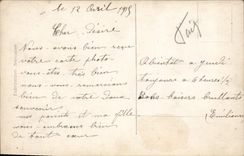 le 12 Avril 1915
Cher Désiré
Nous avons bien reçu
votre carte photo
vous êtes très bien
nous vous remercions
bien de votre doux
souvenir
vos parents et ma fille
vous embrassons bien
de tout cœur
A bientôt a jeudi
toujours a 6 heures 1/2
Doux baisers